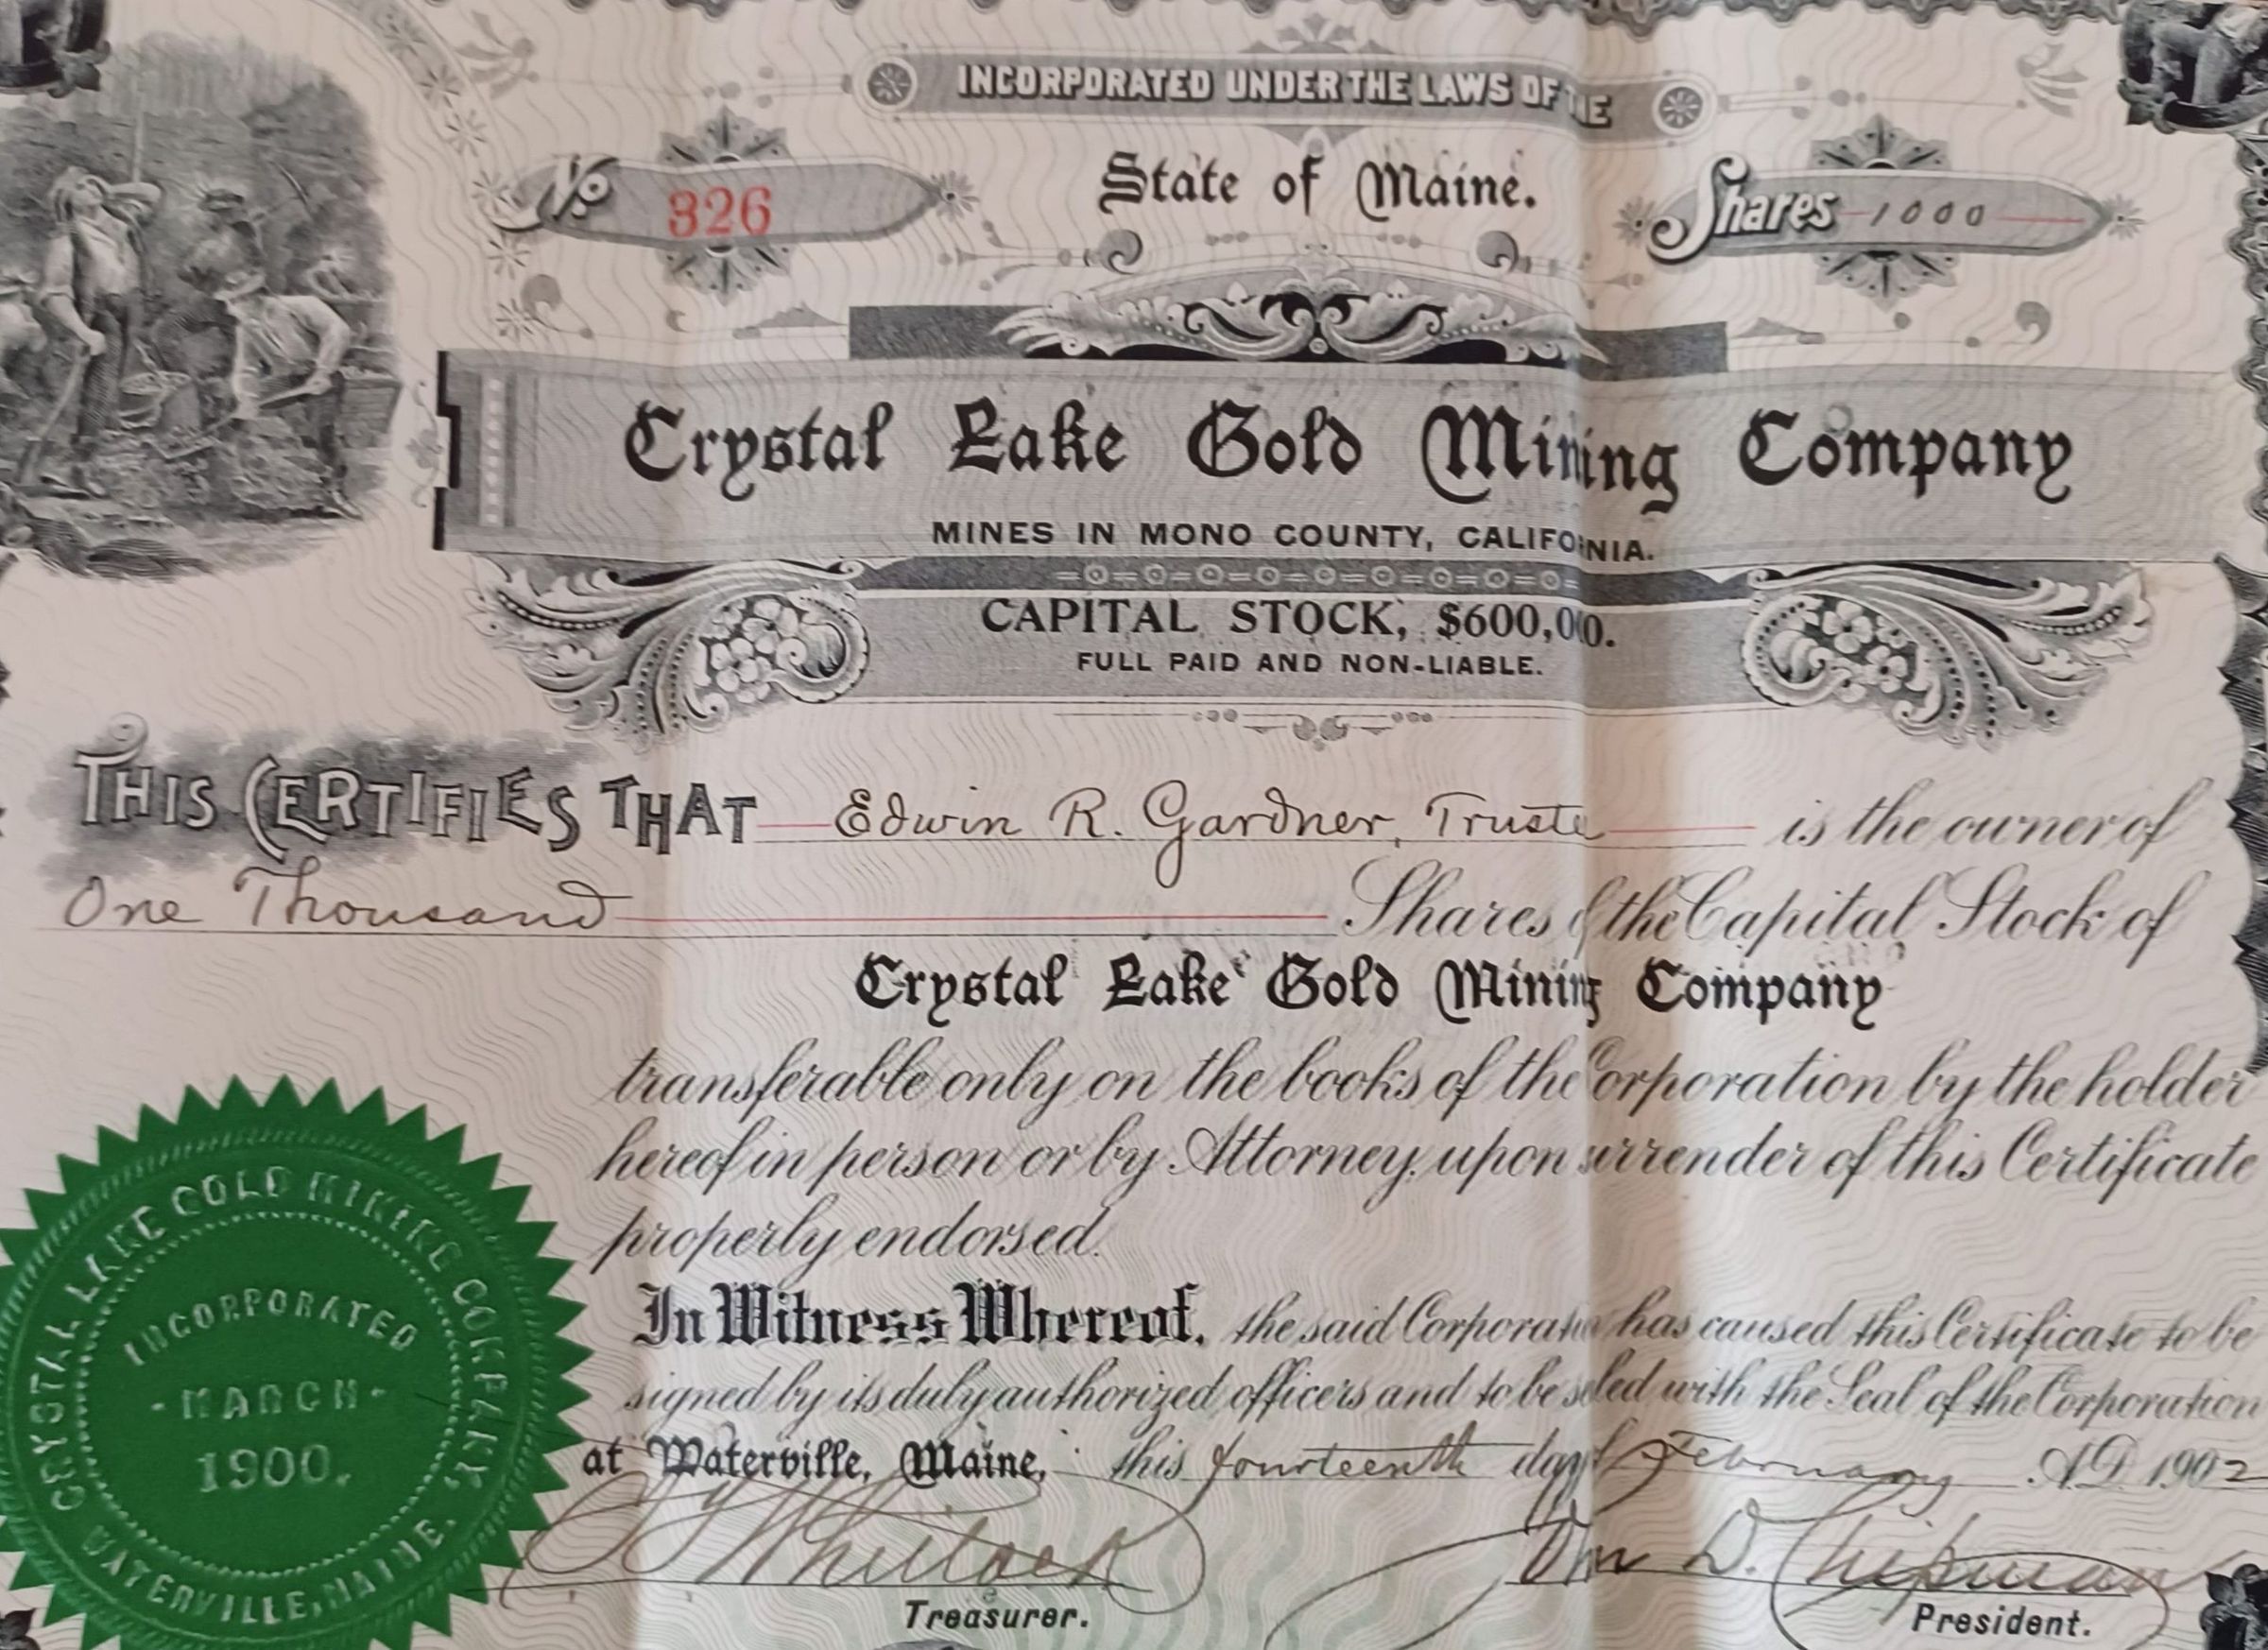 INCORPORATED UNDER THE LAWS OF THE
No 326
State of Maine.
Shares 1000
Crystal Lake Gold Mining Company
MINES IN MONO COUNTY, CALIFORNIA.
CAPITAL STOCK, $600,00.
FULL PAID AND NON-LIABLE.
THIS CERTIFIES THAT Edwin R. Gardner, Truste is the owner of
One Thousand Shares of the Capital Stock of
Crystal Lake Gold Mining Company
transferable only on the books of the Corporation by the holder
hereof in person or by Attorney, upon surrender of this Certificate
properly endorsed.
In Witness Whereof, the said Corporation has caused this Certificate to be
signed by its duly authorized officers and to be sealed with the Seal of the Corporation
at Waterville, Maine, this fourteenth day of February A.D. 1902
Whitlock
Treasurer.
Wm D. Chipman
President.
CRYSTAL LAKE GOLD MINING COMPANY,
INCORPORATED
-MARCH-
1900.
WATERVILLE, MAINE.